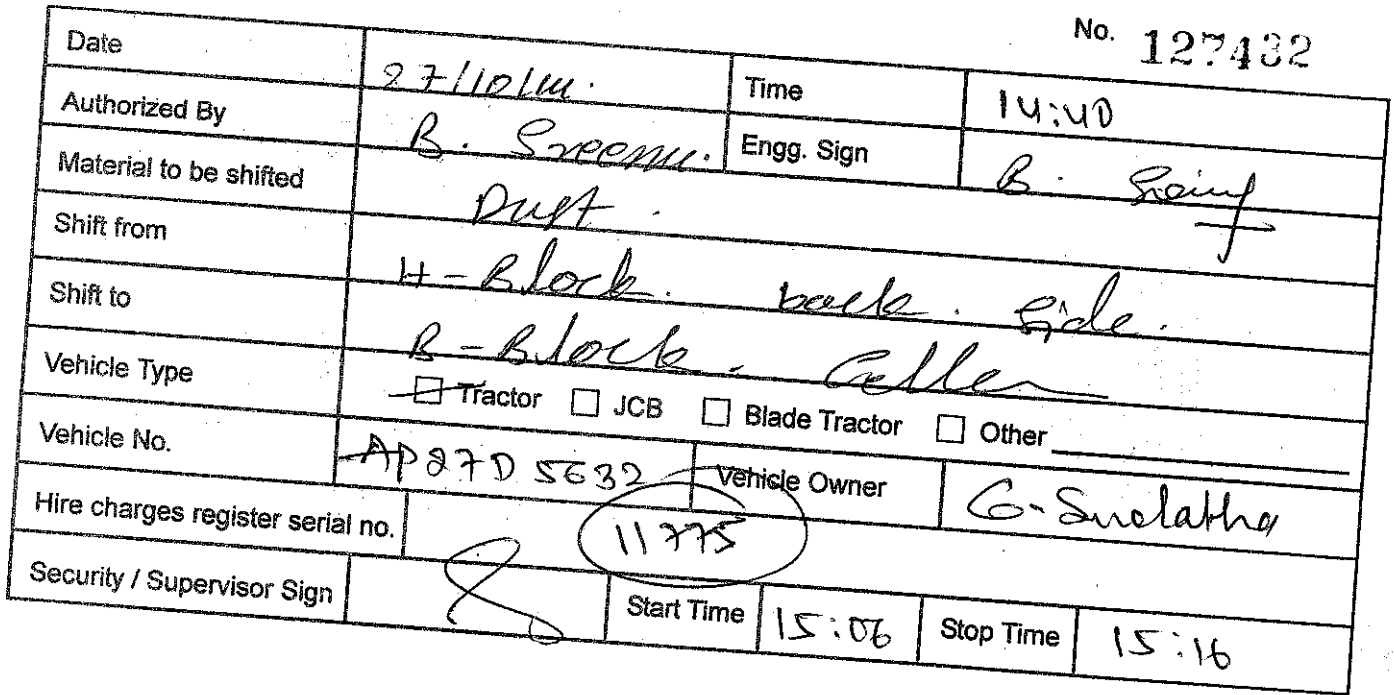 No. 127432
Date 27/10/14. Time 14:40
Authorized By B. Sreenu. Engg. Sign B.
Material to be shifted Dust.
Shift from H-Block. back. Side.
Shift to B-Block. Celler
Vehicle Type Tractor JCB Blade Tractor Other
Vehicle No. AP27D 5632 Vehicle Owner G. Sudatha
Hire charges register serial no. 11775
Security / Supervisor Sign Start Time 15:06 Stop Time 15:16